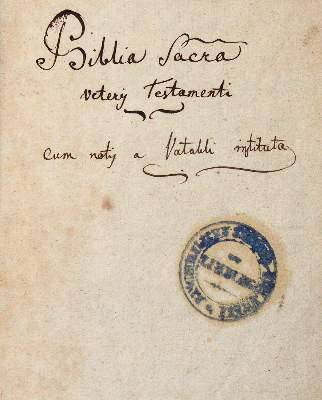 Biblia Sacra
veterij Testamenti
cum notij a Vatabli instituta